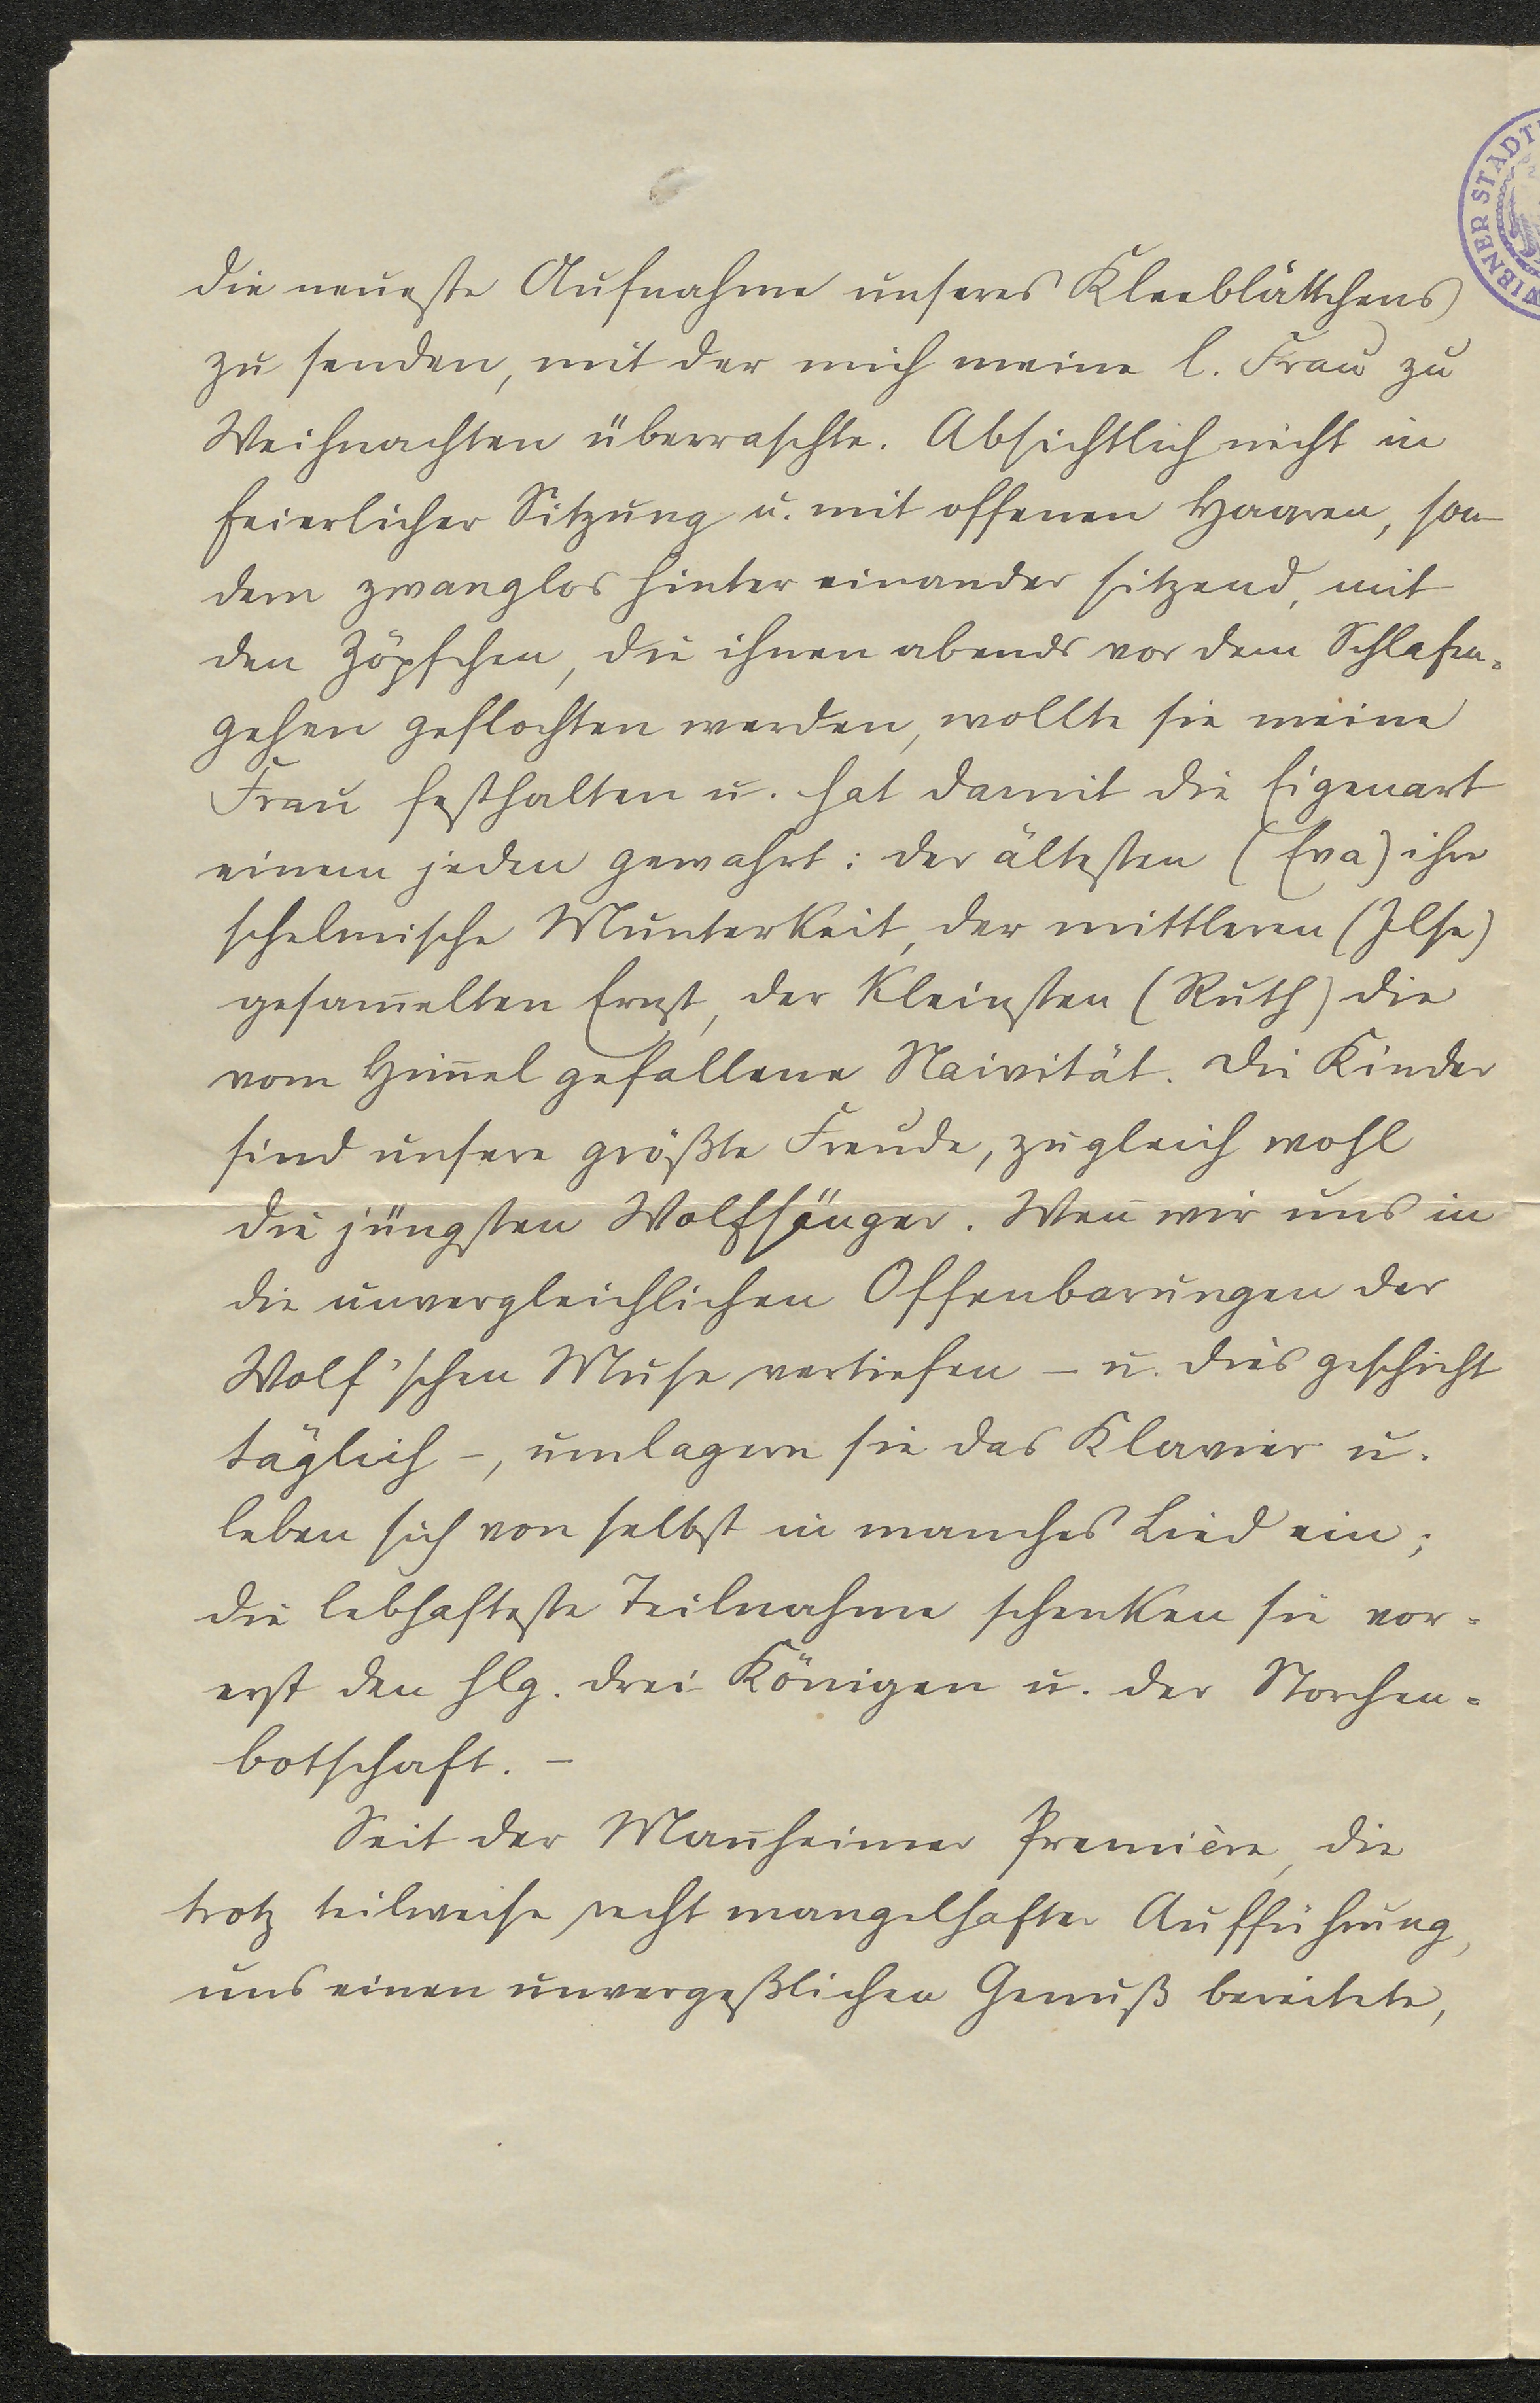 die neueste Aufnahme unseres Kleeblättchens
zu senden, mit der mich meine l. Frau zu
Weihnachten überraschte. Absichtlich nicht in
feierlicher Sitzung u. mit offenen Haaren, son-
dern zwanglos hinter einander sitzend, mit
den Zöpfchen, die ihnen abends vor dem Schlafen-
gehen geflochten werden, wollte sie meine
Frau festhalten u. hat damit die Eigenart
einem jeden gewahrt: der ältesten (Eva) ihre
schelmische Munterkeit, der mittleren (Ilse)
gesam̄elten Ernst, der Kleinsten (Ruth) die
vom Him̄el gefallene Naivität. Die Kinder
sind unsere größte Freude, zugleich wohl
die jüngsten Wolfsänger. Wen̄ wir uns in
die unvergleichlichen Offenbarungen der
Wolf'schen Muse vertiefen – u. dies geschieht
täglich –, umlagern sie das Klavier u.
leben sich von selbst in manches Lied ein;
die lebhafteste Teilnahme schenken sie vor-
erst den hlg. drei Königen u. der Storchen-
botschaft. –
Seit der Man̄heimer Première, die
trotz teilweise recht mangelhafter Aufführung,
uns einen unvergeßlichen Genuß bereitete,
WIENER STADT